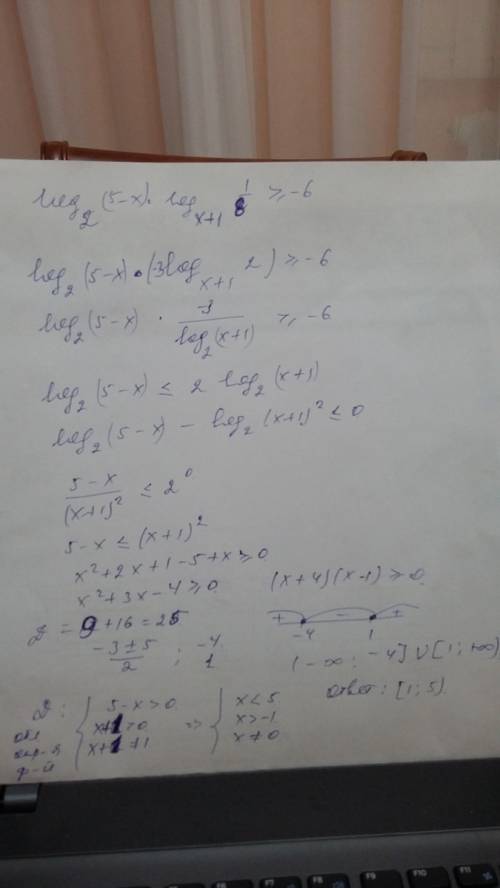 log₂(5-x) · log_{x+1} 1/8 ≥ -6
log₂(5-x) · (-3log_{x+1} 2) ≥ -6
log₂(5-x) · -3/log₂(x+1) ≥ -6
log₂(5-x) ≤ 2 log₂(x+1)
log₂(5-x) - log₂(x+1)² ≤ 0
5-x/(x+1)² ≤ 2⁰
5-x ≤ (x+1)²
x²+2x+1-5+x ≥ 0
x²+3x-4 ≥ 0
D = 9+16 = 25
-3±5/2 ; -4 1
(x+4)(x-1) ≥ 0
+ - +
-4 1
(-∞; -4] ∪ [1; +∞)
Ответ: [1; 5).
D: { 5-x>0 => { x<5
обл x+1>0 x>-1
опр-я x+1≠1 x≠0
ф-и
F6 F7 F8 F9 F10 F11